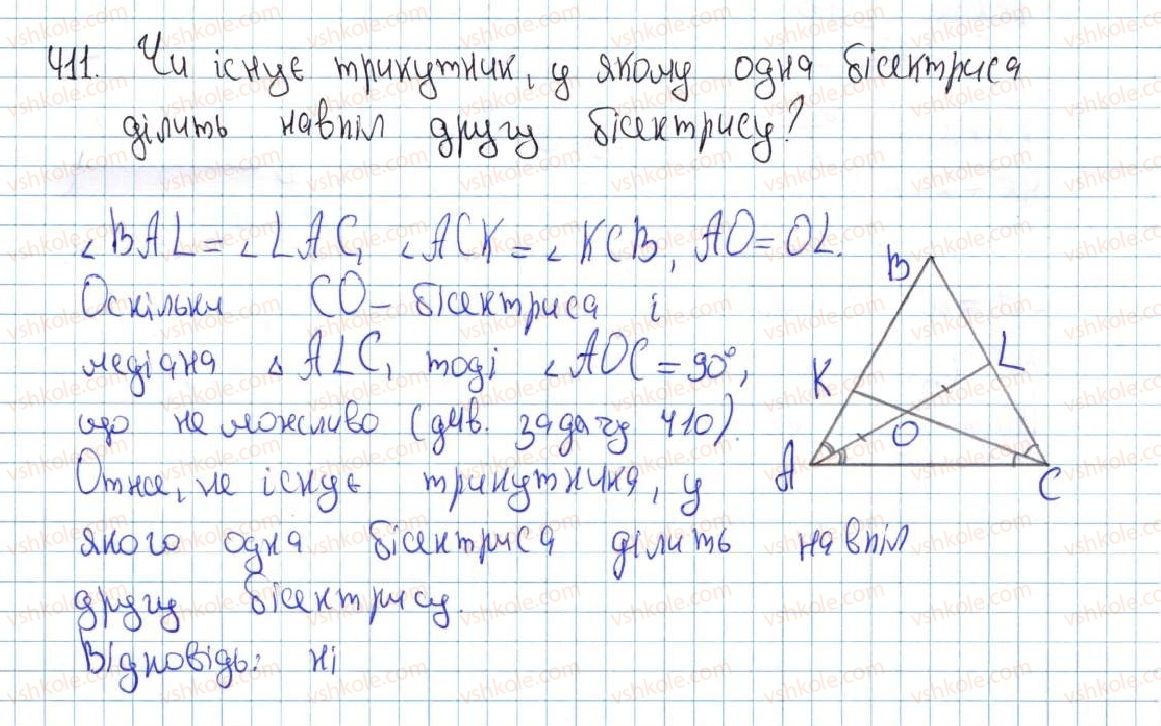 411. Чи існує трикутник, у якому одна бісектриса
ділить навпіл другу бісектрису?
∠BAL = ∠LAC, ∠ACK = ∠KCB, AO = OL.
Оскільки CO – бісектриса і
медіана △ ALC, тоді ∠AOC = 90°,
що не можливо (див. задачу 410).
Отже, не існує трикутника, у
якого одна бісектриса ділить навпіл
другу бісектрису.
Відповідь: ні
B
K
L
O
A
C
vshkole.com